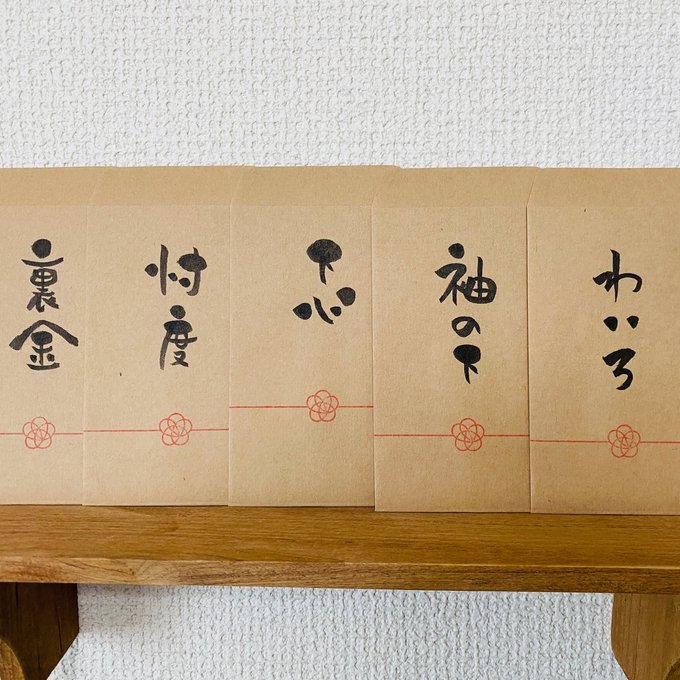 わいろ
袖の下
下心
忖度
裏金